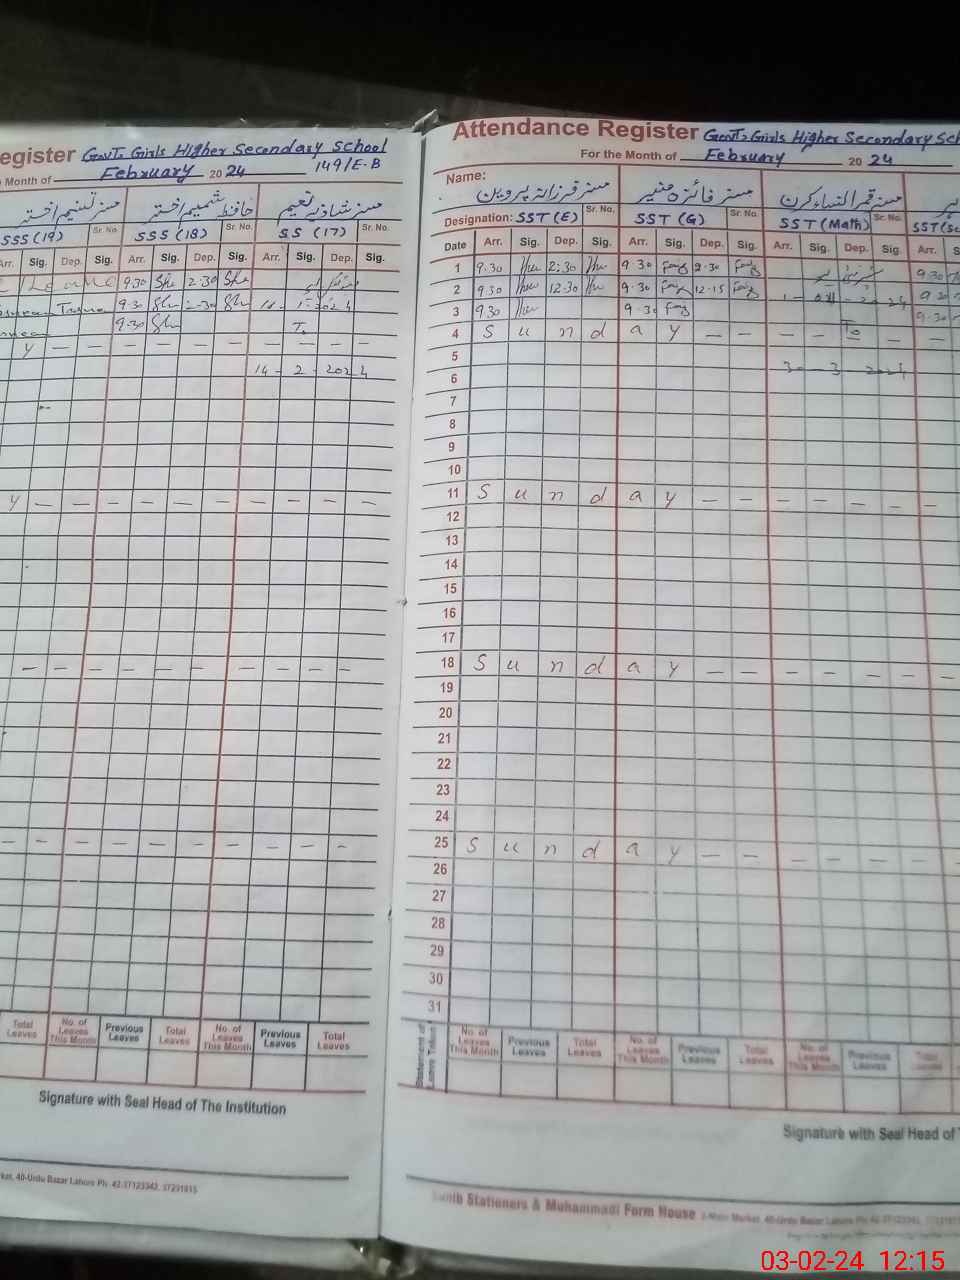 egister Govt. Girls Higher Secondary School
149/E-B
Month of February 2024
مسز تسنیم اختر حافظہ شمیم اختر مسز شازیہ نعیم
SSS (19) Sr. No. SSS (18) Sr. No. SS (17) Sr. No.
Arr. Sig. Dep. Sig. Arr. Sig. Dep. Sig. Arr. Sig. Dep. Sig.
9.30 2.30
9.30 2.30
9.30 To
y — — — — — — — — — —
14 - 2 - 2024
y — — — — — — — — — —
— — — — — — — — — —
— — — — — — — — — —
Total Leaves No. of Leaves This Month Previous Leaves Total Leaves No. of Leaves This Month Previous Leaves Total Leaves
Signature with Seal Head of The Institution
40-Urdu Bazar Lahore Ph: 42-37123342, 37231915
Attendance Register Govt. Girls Higher Secondary Sch
For the Month of February 2024
Name: مسز فرزانہ پروین مسز فائزہ منیر مسز قمر النساء کرن
Designation: SST (E) Sr. No. SST (G) Sr. No. SST (Math) Sr. No. SST (Sc
Date Arr. Sig. Dep. Sig. Arr. Sig. Dep. Sig. Arr. Sig. Dep. Sig. Arr.
1 9.30 2:30 9.30 2.30 9.30
2 9.30 12.30 9.30 12.15
3 9.30 9.30 9.30
4 S u n d a y — — — To — —
5
6 30 - 3 - 2024
7
8
9
10
11 S u n d a y — — — — — — —
12
13
14
15
16
17
18 S u n d a y — — — — — — —
19
20
21
22
23
24
25 S u n d a y — — — — — — —
26
27
28
29
30
31
Statement of Leave Taken No. of Leaves This Month Previous Leaves Total Leaves No. of Leaves This Month Previous Leaves Total Leaves No. of Leaves This Month Previous Leaves Total Leaves
Signature with Seal Head of
Stationers & Muhammadi Form House
03-02-24 12:15